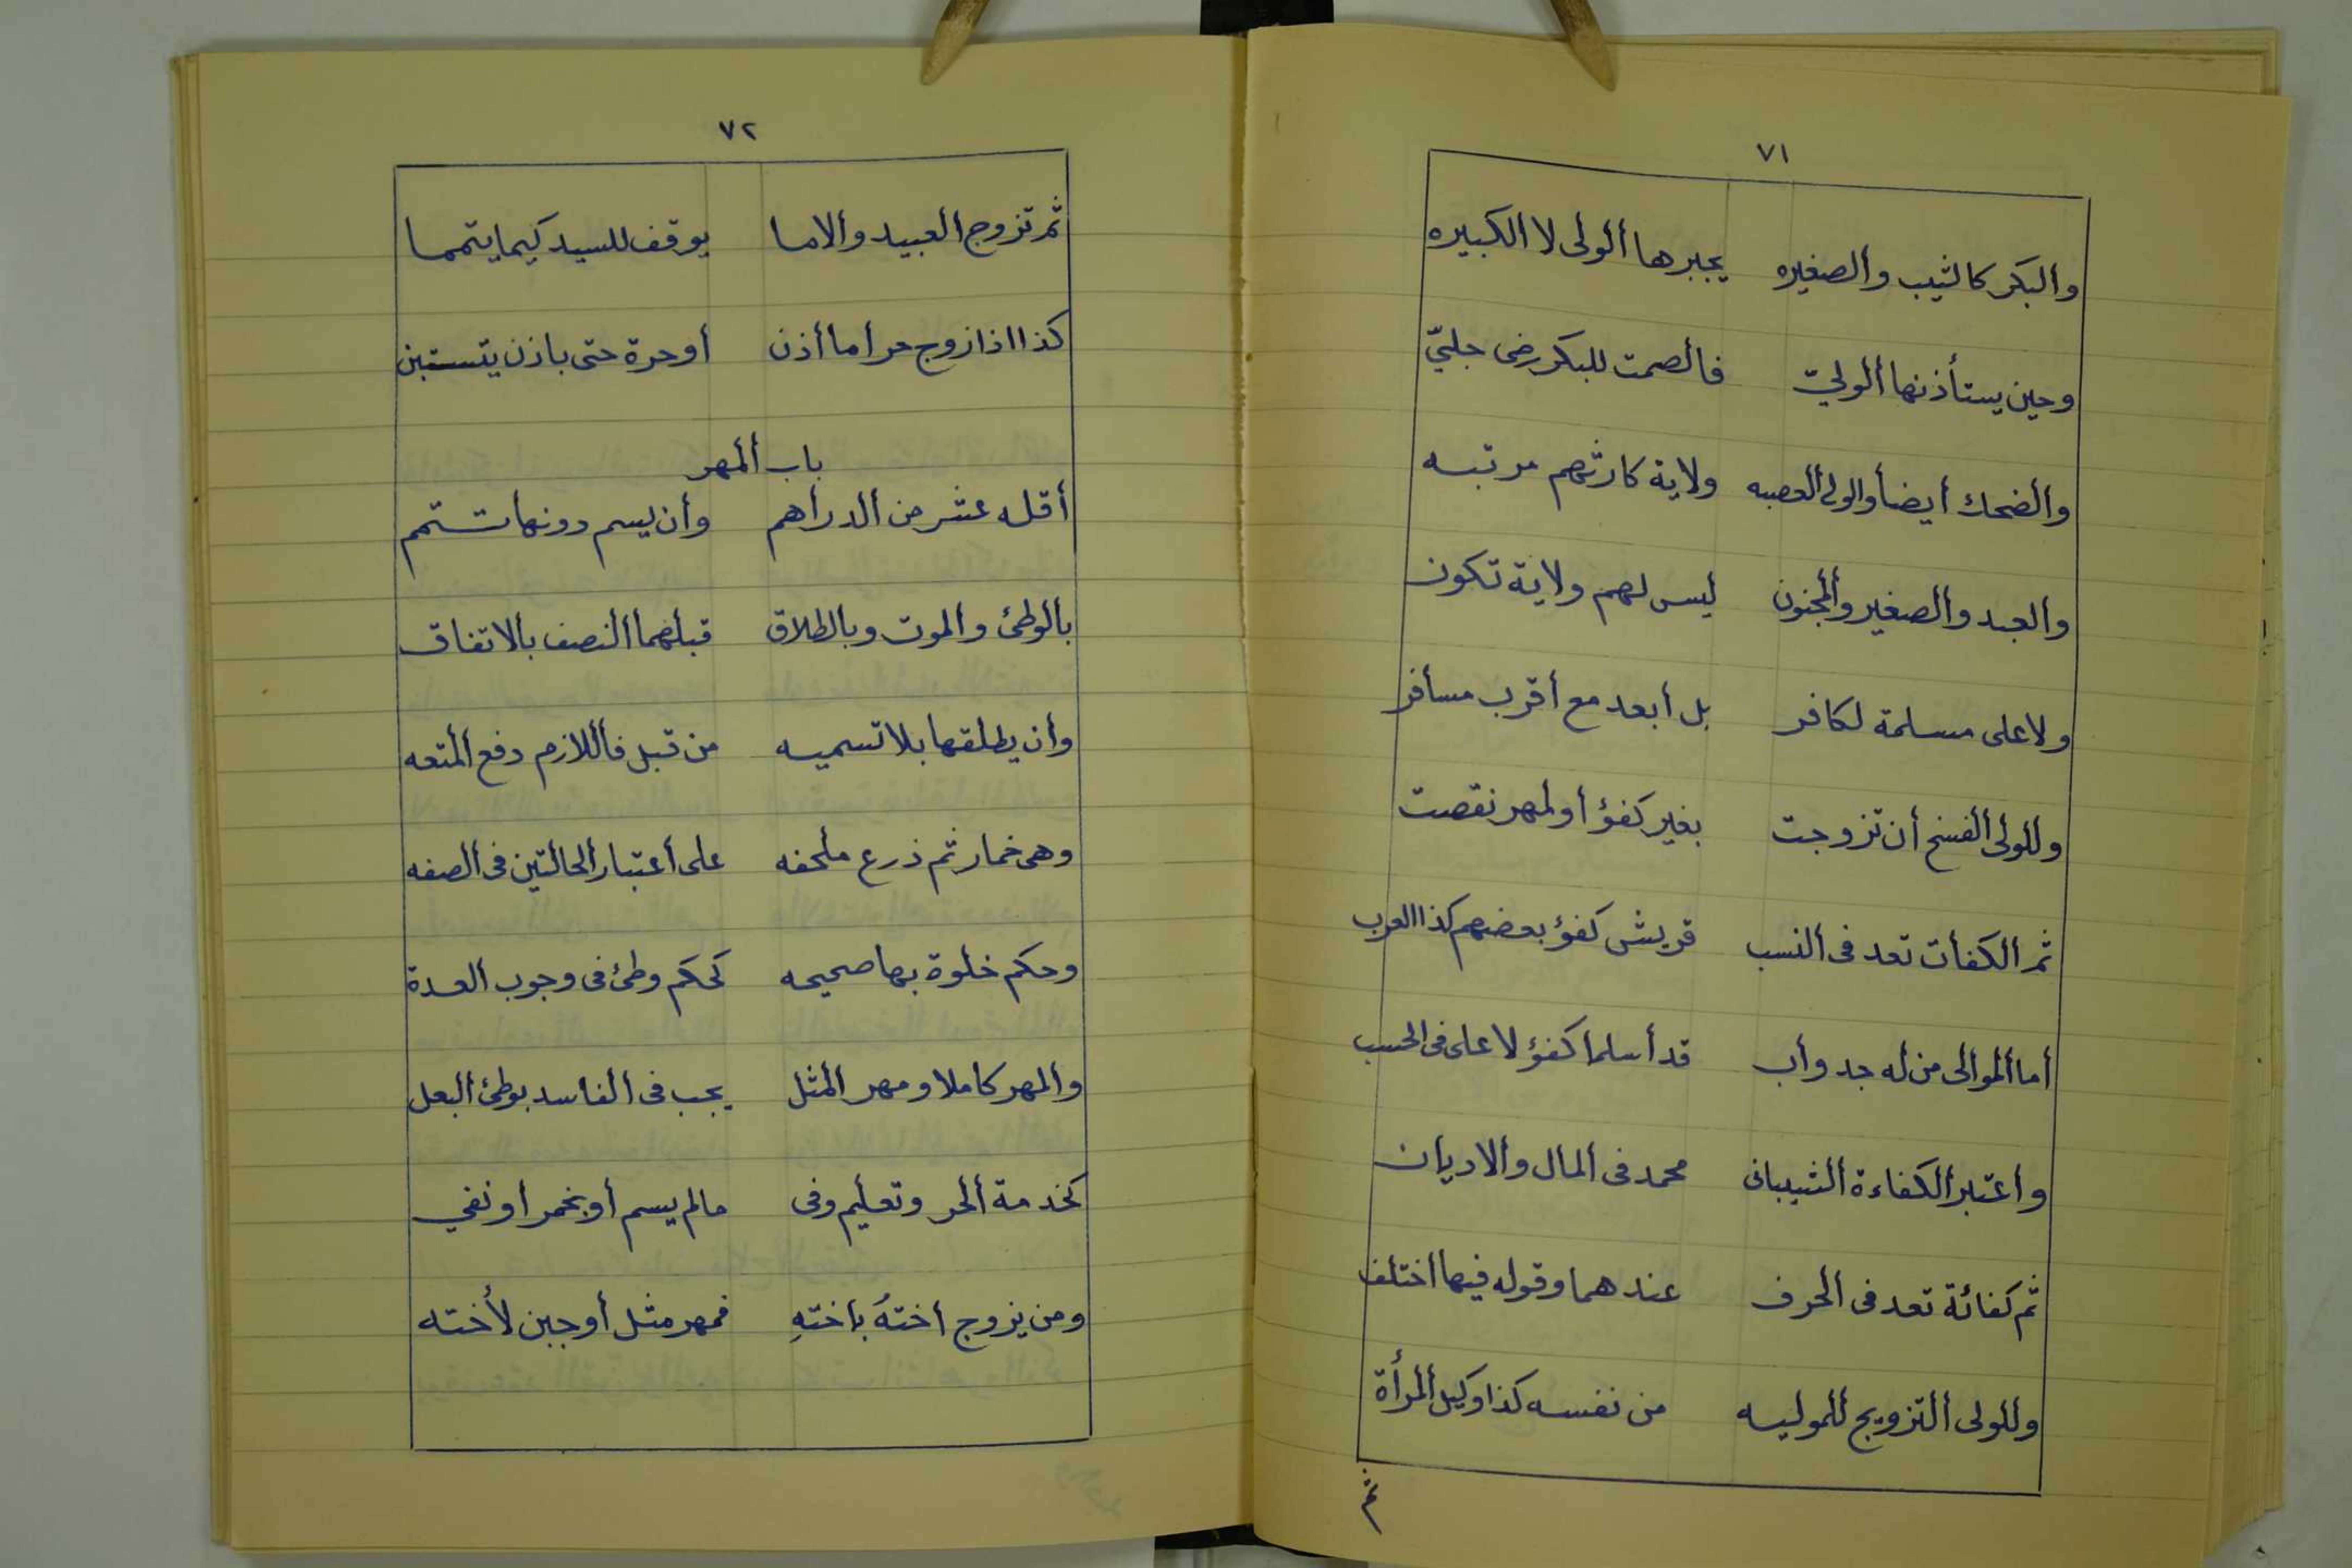 ٧١
والبكر كالثيب والصغيره يجبرها ألولى لا الكبيره
وحين يستأذنها ألوليّ فألصمت للبكر رضى جليّ
وألضحك أيضأ والولى ألعصبه ولاية كارثهم مرتبه
والعبد وألصغير وألمجنون ليس لهم ولاية تكون
ولا على مسلمة لكافر بل أبعد مع أقرب مسأفر
وللولى ألفسخ أن تزوجت بغير كفؤ أو لمهر نقصت
ثم الكفأت تعد فى النسب قريش كفؤ بعضهم كذا العرب
أما ألموالى من له جد وأب قد أسلما كفؤ لا على فى الحسب
وأعتبر ألكفاءة ألشيبانى محمد فى المال والاديان
ثم كفائة تعد فى الحرف عندهما وقوله فيها اختلف
وللولى ألتزويج للموليه من نفسه كذا وكيل ألمرأة
ثم
٧٢
ثم تزوج ألعبيد وألاما يوقف للسيد كيما يتمما
كذا اذا زوج حر أما أذن أو حرة حتى باذن يتستبن
باب ألمهر
أقله عشر من ألدرأهم وأن يسم دونها تستم
بألوطئ وألموت وبالطلاق قبلهما ألنصف بالاتفاق
وأن يطلقها بلا تسميه من قبل فأللازم دفع ألمتعه
وهى خمار ثم ذرع ملحفه على أعتبار ألحالتين فى ألصفه
وحكم خلوة بها صحيحه كحكم وطئ فى وجوب ألعدة
وألمهر كاملا ومهر ألمثل يجب فى ألفاسد بوطئ ألبعل
كخدمة ألحر وتعليم وفى مالم يسم أو بخمر أو نفي
ومن يزوج اختهُ باختهِ فمهر مثل أوجبن لأخته